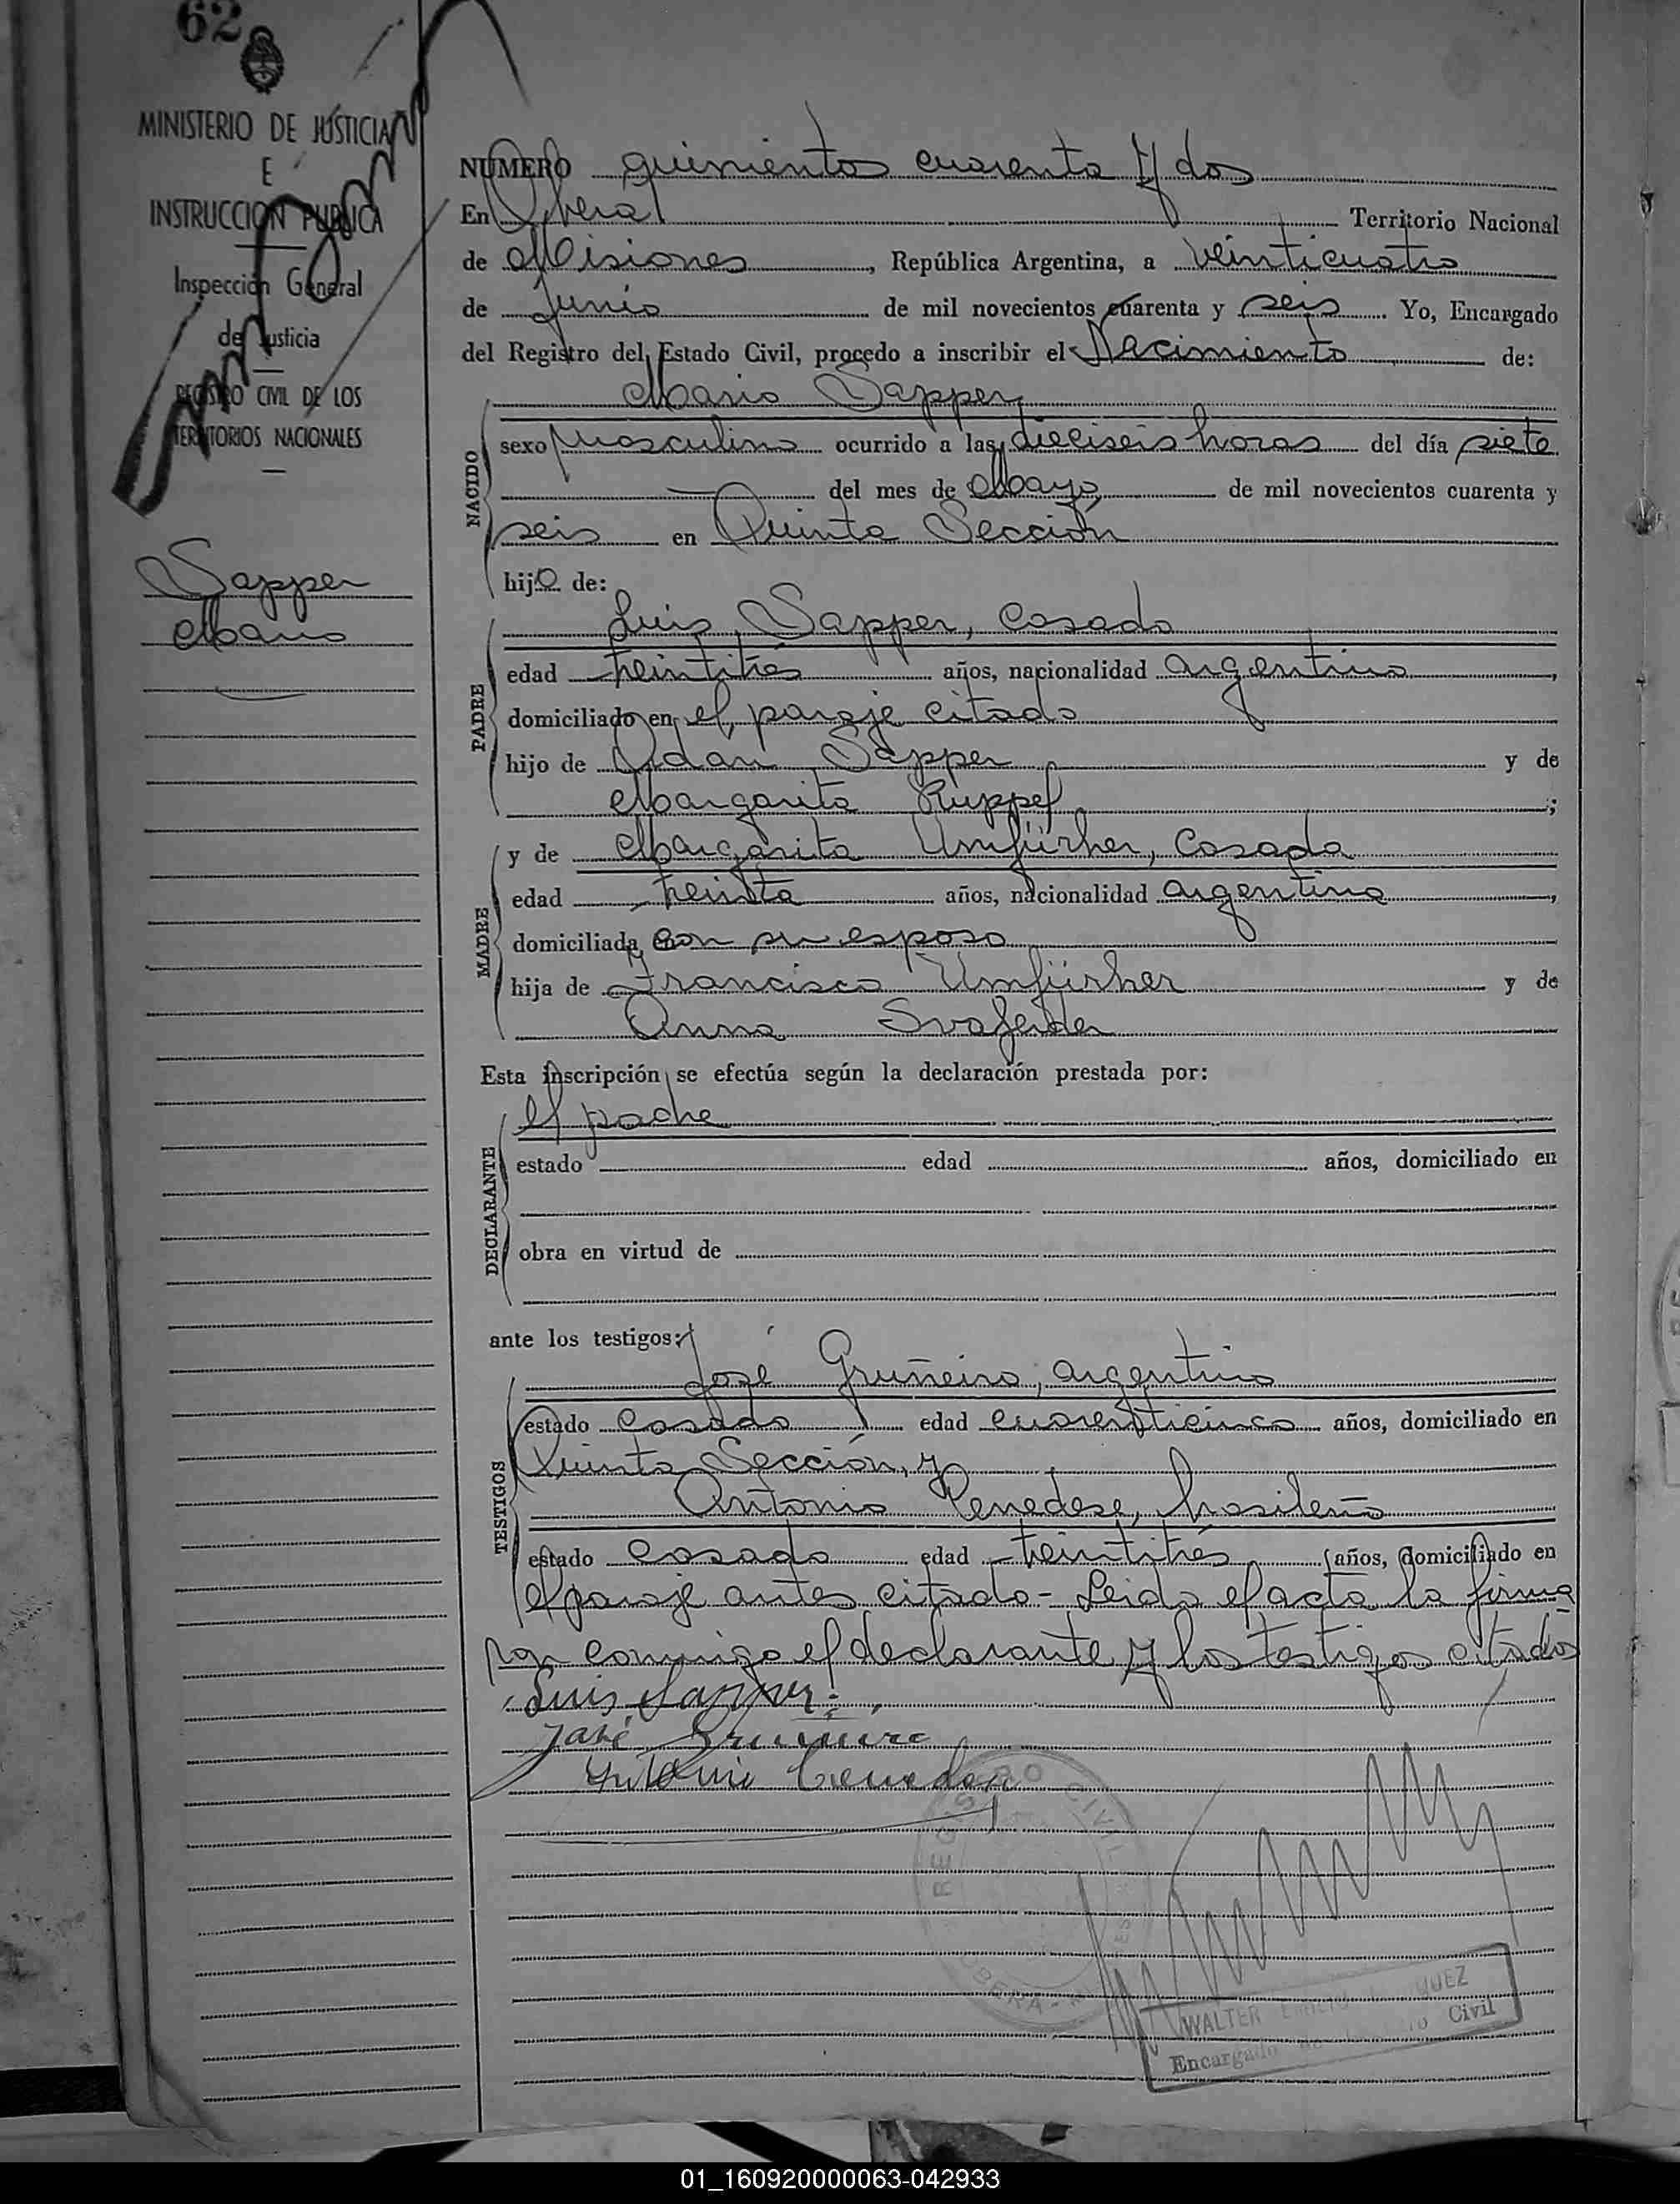 62
MINISTERIO DE JUSTICIA
E
INSTRUCCION PUBLICA
Inspección General
de Justicia
REGISTRO CIVIL DE LOS
TERRITORIOS NACIONALES
Sapper
Mario
NUMERO quinientos cuarenta y dos
En Oberá Territorio Nacional
de Misiones, República Argentina, a veinticuatro
de Junio de mil novecientos cuarenta y seis Yo, Encargado
del Registro del Estado Civil, procedo a inscribir el Nacimiento de:
Mario Sapper
NACIDO
sexo masculino ocurrido a las dieciseis horas del día siete
del mes de Mayo de mil novecientos cuarenta y
seis en Quinta Sección
hijo de:
Luis Sapper, casado
PADRE
edad treintitrés años, nacionalidad argentino,
domiciliado en el paraje citado
hijo de Adan Sapper y de
Margarita Ruppel;
y de Margarita Umfürher, casada
MADRE
edad treinta años, nacionalidad argentina,
domiciliada con su esposo
hija de Francisco Umfürher y de
Anna
Esta inscripción se efectúa según la declaración prestada por:
el padre
DECLARANTE
estado edad años, domiciliado en
obra en virtud de
ante los testigos:
José Gruñeiro, argentino
TESTIGOS
estado casado edad cuarenticinco años, domiciliado en
Quinta Sección, y
Antonio Penedese, brasileño
estado casado edad treintitrés años, domiciliado en
el paraje antes citado - Leida el acta la firma
ron conmigo el declarante y los testigos citados
Luis Sapper
José
REGISTRO CIVIL
OBERA
WALTER EMILIO
Encargado Civil
01_160920000063-042933